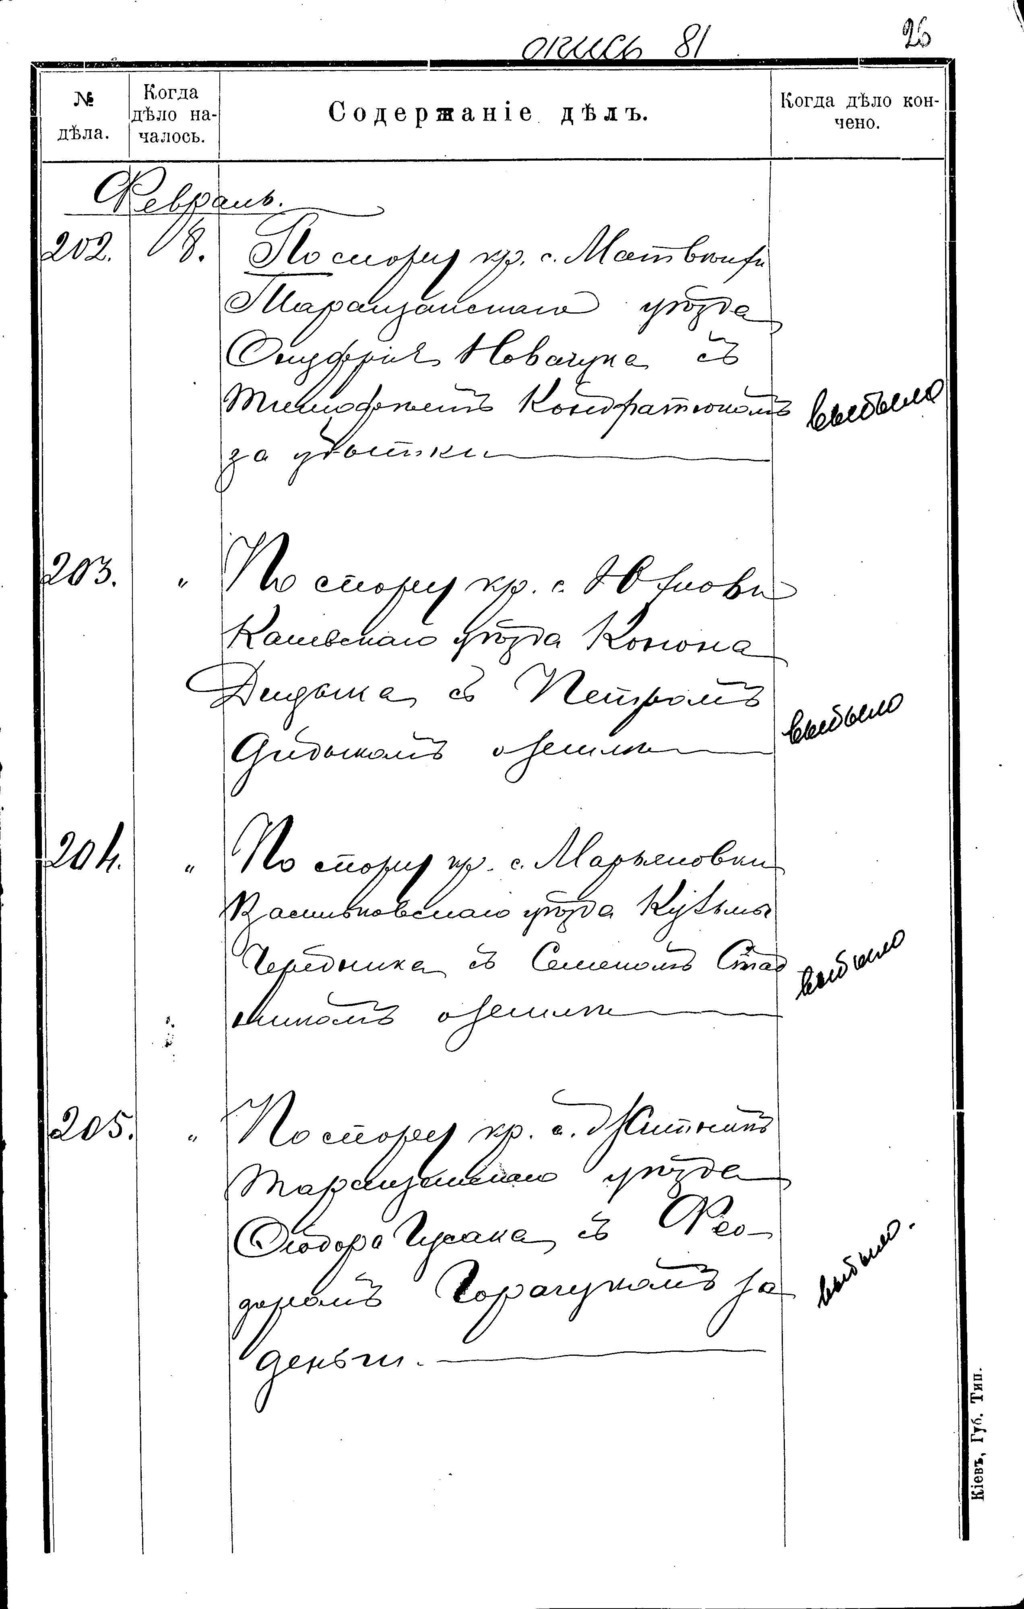 опись 81
26
№ дѣла.
Когда дѣло началось.
Содержаніе дѣлъ.
Когда дѣло кончено.
Февраль.
202. 8. По спору кр. с.
Таращанскаго уѣзда
Онуфрія Новачука съ
Тимофеемъ Кондратюкомъ
за убытки
выбыло
203. " По спору кр. с. Юзовки
Каневскаго уѣзда Конона
Дидыка съ Петромъ
Дидыкомъ о землѣ
выбыло
204. " По спору кр. с. Марьяновки
Васильковскаго уѣзда Кузьмы
Чередника съ Семеномъ Стад
никомъ о землѣ
выбыло
205. " По спору кр. с.
Таращанскаго уѣзда
Федора Гусака съ Фео-
доромъ Горачукомъ за
деньги.
выбыло.
Кіевъ, Губ. Тип.